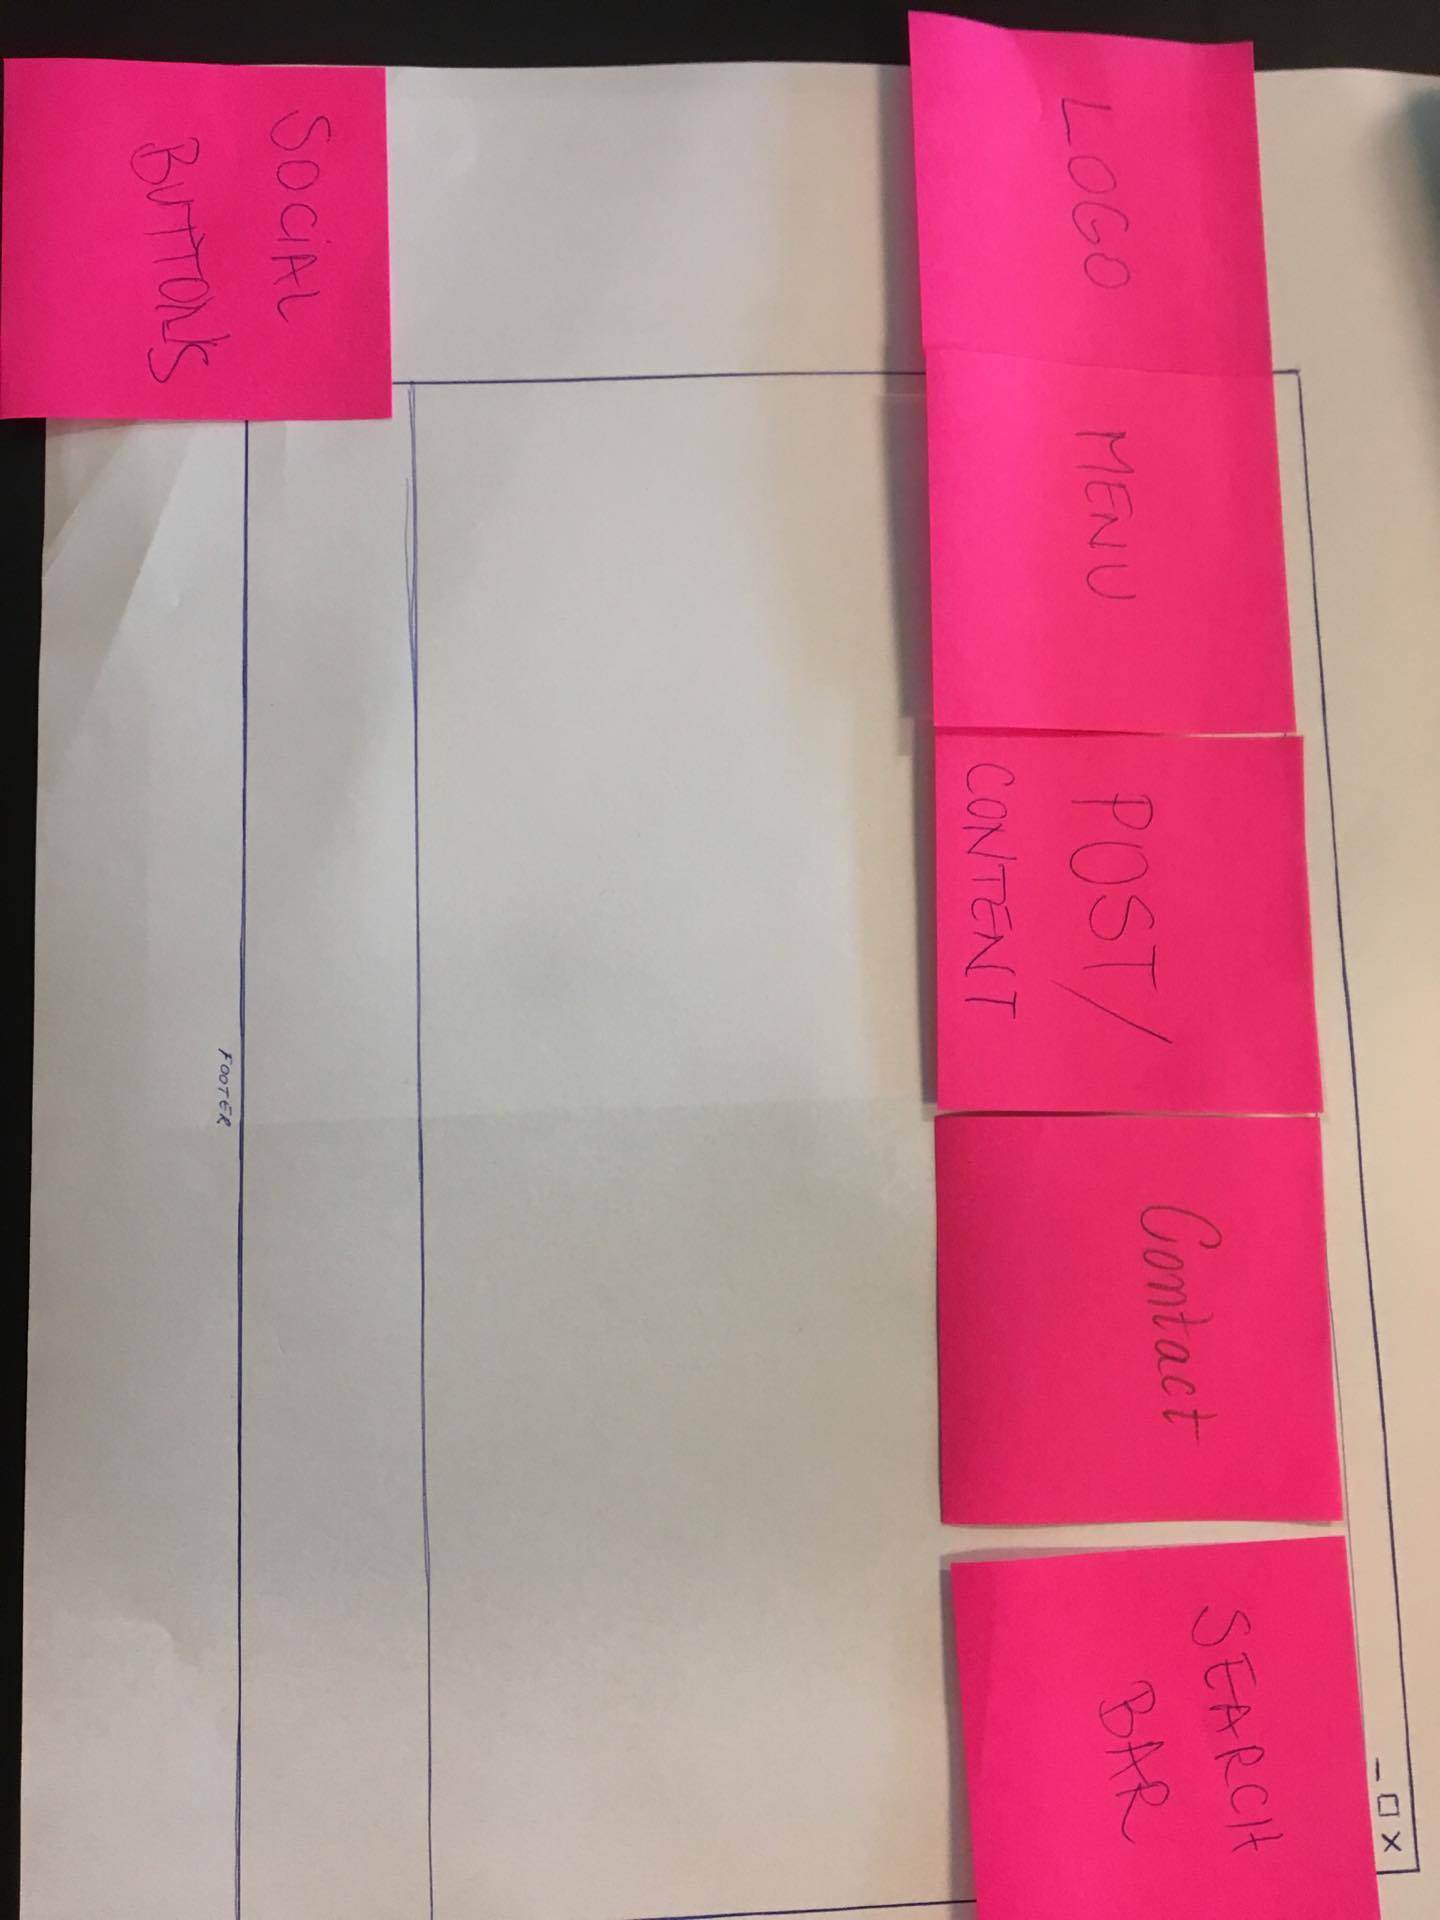 LOGO
MENU
POST/
CONTENT
Contact
SEARCH
BAR
SOCIAL
BUTTONS
FOOTER